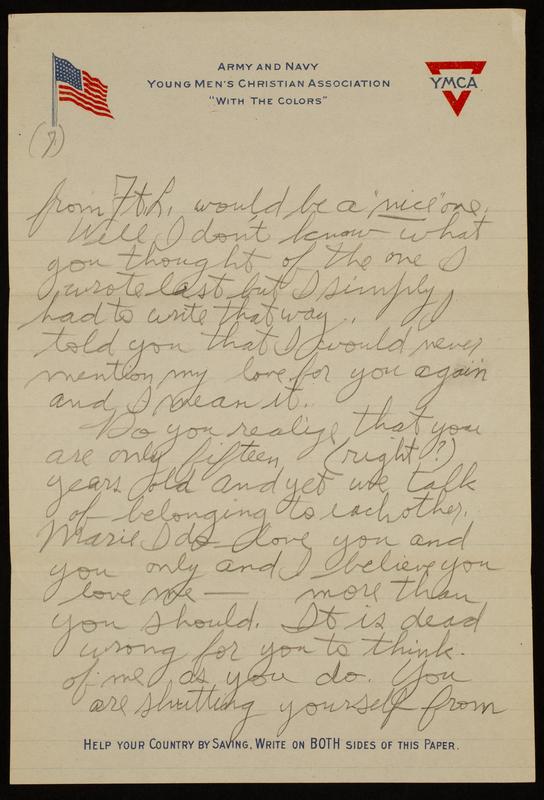 ARMY AND NAVY
YOUNG MEN'S CHRISTIAN ASSOCIATION
"WITH THE COLORS"
YMCA
(7)
from Ft. L. would be a "nice" one.
Well I don't know what
you thought of the one I
wrote last but I simply
had to write that way. I
told you that I would never
mention my love for you again
and I mean it.
Do you realize that you
are only fifteen (right?)
years old and yet we talk
of belonging to eachother.
Marie I do love you and
you only and I believe you
love me — more than
you should. It is dead
wrong for you to think
of me as you do. You
are shutting yourself from
HELP YOUR COUNTRY BY SAVING, WRITE ON BOTH SIDES OF THIS PAPER.